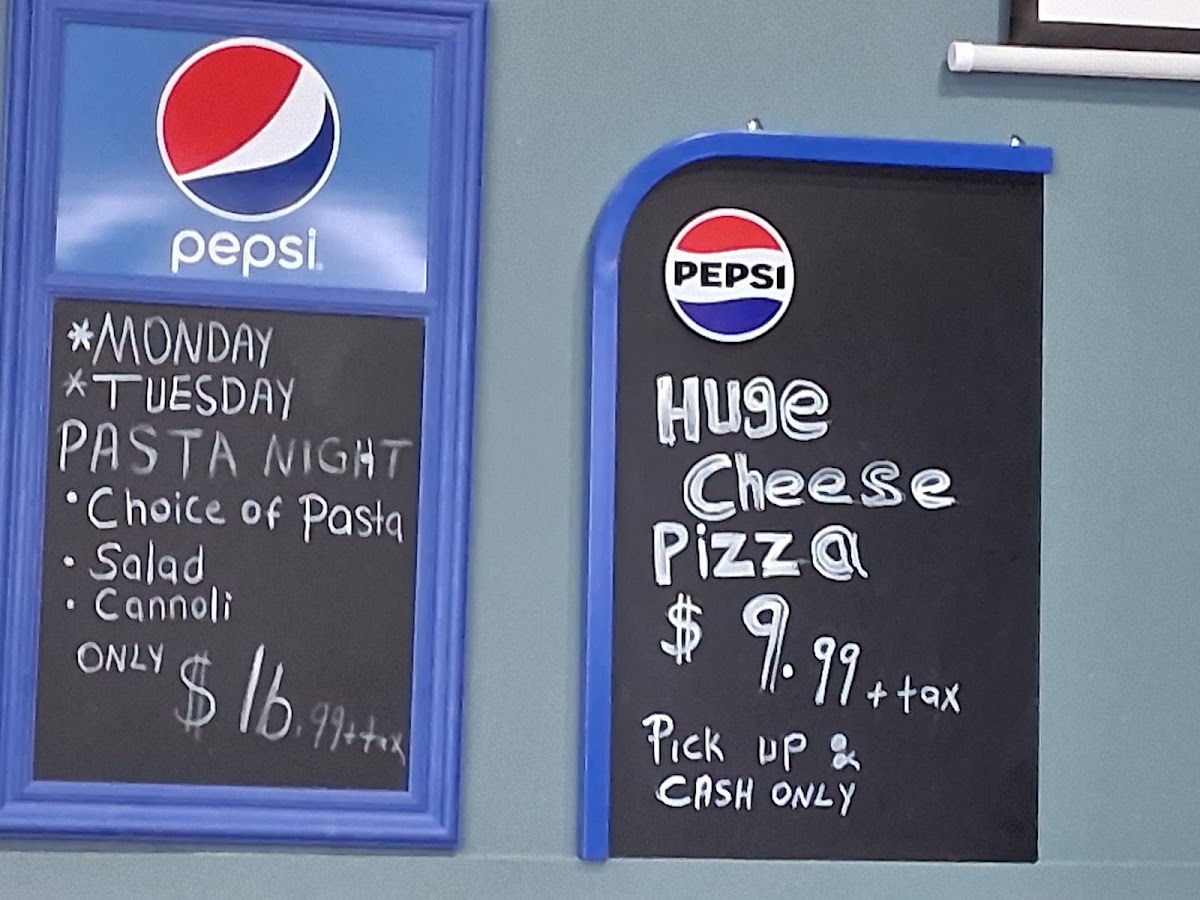 pepsi
*MONDAY
*TUESDAY
PASTA NIGHT
• Choice of Pasta
• Salad
• Cannoli
ONLY $16.99+tax
PEPSI
Huge
Cheese
Pizza
$9.99+tax
Pick up &
CASH ONLY